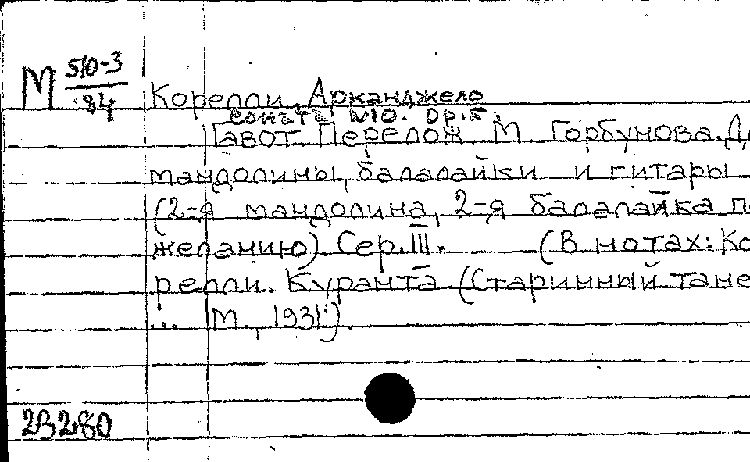 М 510-3
84
Корелли, Арканджело
соната №10. Op.5.
Гавот. Перелож. М. Горбунова. Дл
мандолины, балалайки и гитары
(2-я мандолина, 2-я балалайка по
желанию) Сер. III. (В нотах: Ко
релли. Куранта (Старинный тане
... М., 1931.)